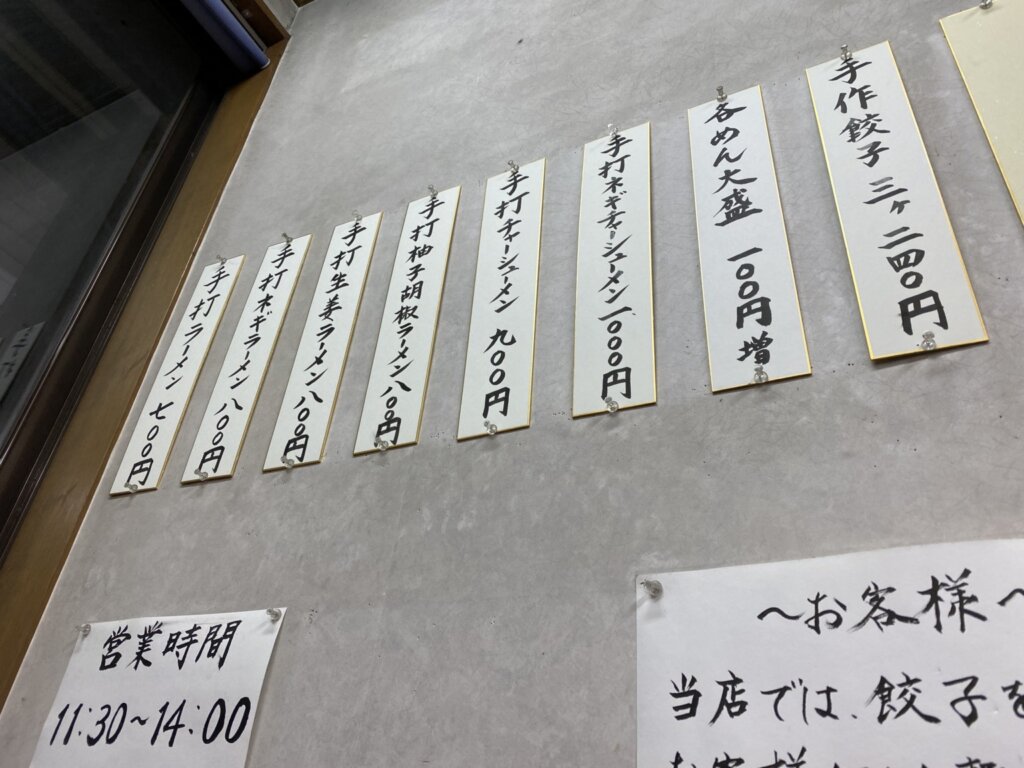 手打ラーメン 七〇〇円
手打ネギラーメン 八〇〇円
手打生姜ラーメン 八〇〇円
手打柚子胡椒ラーメン 八〇〇円
手打チャーシューメン 九〇〇円
手打ネギチャーシューメン 一〇〇〇円
各めん大盛 一〇〇円増
手作餃子 三ヶ 二四〇円
営業時間
11:30~14:00
~お客様~
当店では、餃子を
お客様